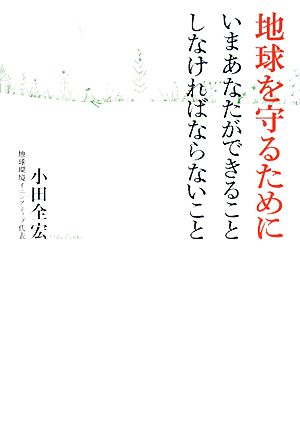 地球を守るために
いまあなたができること
しなければならないこと
小田全宏
地球環境イニシアティブ代表